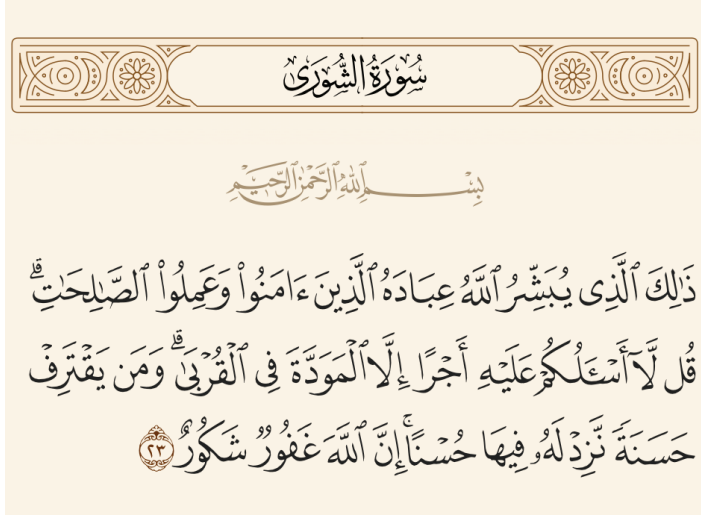 سُورَةُ الشُّورَىٰ
بِسْمِ ٱللَّهِ ٱلرَّحْمَٰنِ ٱلرَّحِيمِ
ذَٰلِكَ ٱلَّذِى يُبَشِّرُ ٱللَّهُ عِبَادَهُ ٱلَّذِينَ ءَامَنُوا۟ وَعَمِلُوا۟ ٱلصَّٰلِحَٰتِ ۗ
قُل لَّآ أَسْـَٔلُكُمْ عَلَيْهِ أَجْرًا إِلَّا ٱلْمَوَدَّةَ فِى ٱلْقُرْبَىٰ ۗ وَمَن يَقْتَرِفْ
حَسَنَةً نَّزِدْ لَهُۥ فِيهَا حُسْنًا ۚ إِنَّ ٱللَّهَ غَفُورٌ شَكُورٌ ٢٣